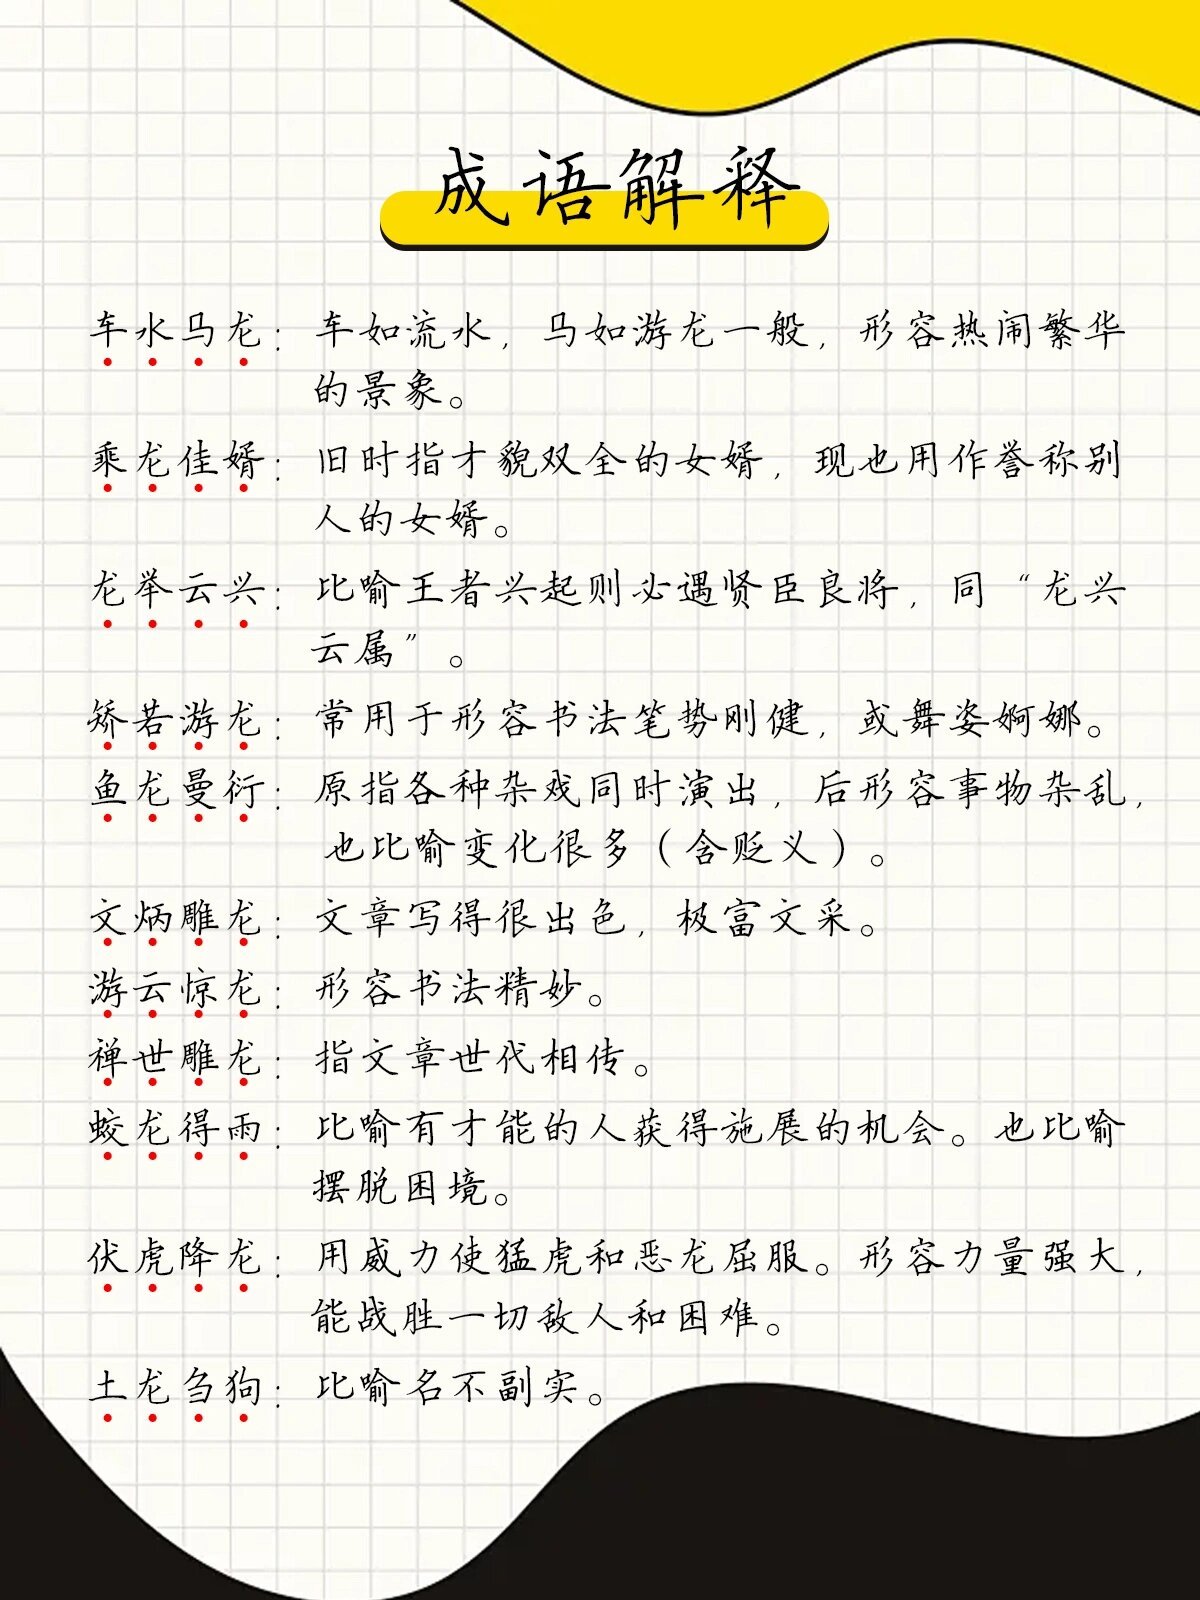 成语解释
车水马龙：车如流水，马如游龙一般，形容热闹繁华
的景象。
乘龙佳婿：旧时指才貌双全的女婿，现也用作誉称别
人的女婿。
龙举云兴：比喻王者兴起则必遇贤臣良将，同“龙兴
云属”。
矫若游龙：常用于形容书法笔势刚健，或舞姿婀娜。
鱼龙曼衍：原指各种杂戏同时演出，后形容事物杂乱，
也比喻变化很多（含贬义）。
文炳雕龙：文章写得很出色，极富文采。
游云惊龙：形容书法精妙。
禅世雕龙：指文章世代相传。
蛟龙得雨：比喻有才能的人获得施展的机会。也比喻
摆脱困境。
伏虎降龙：用威力使猛虎和恶龙屈服。形容力量强大，
能战胜一切敌人和困难。
土龙刍狗：比喻名不副实。